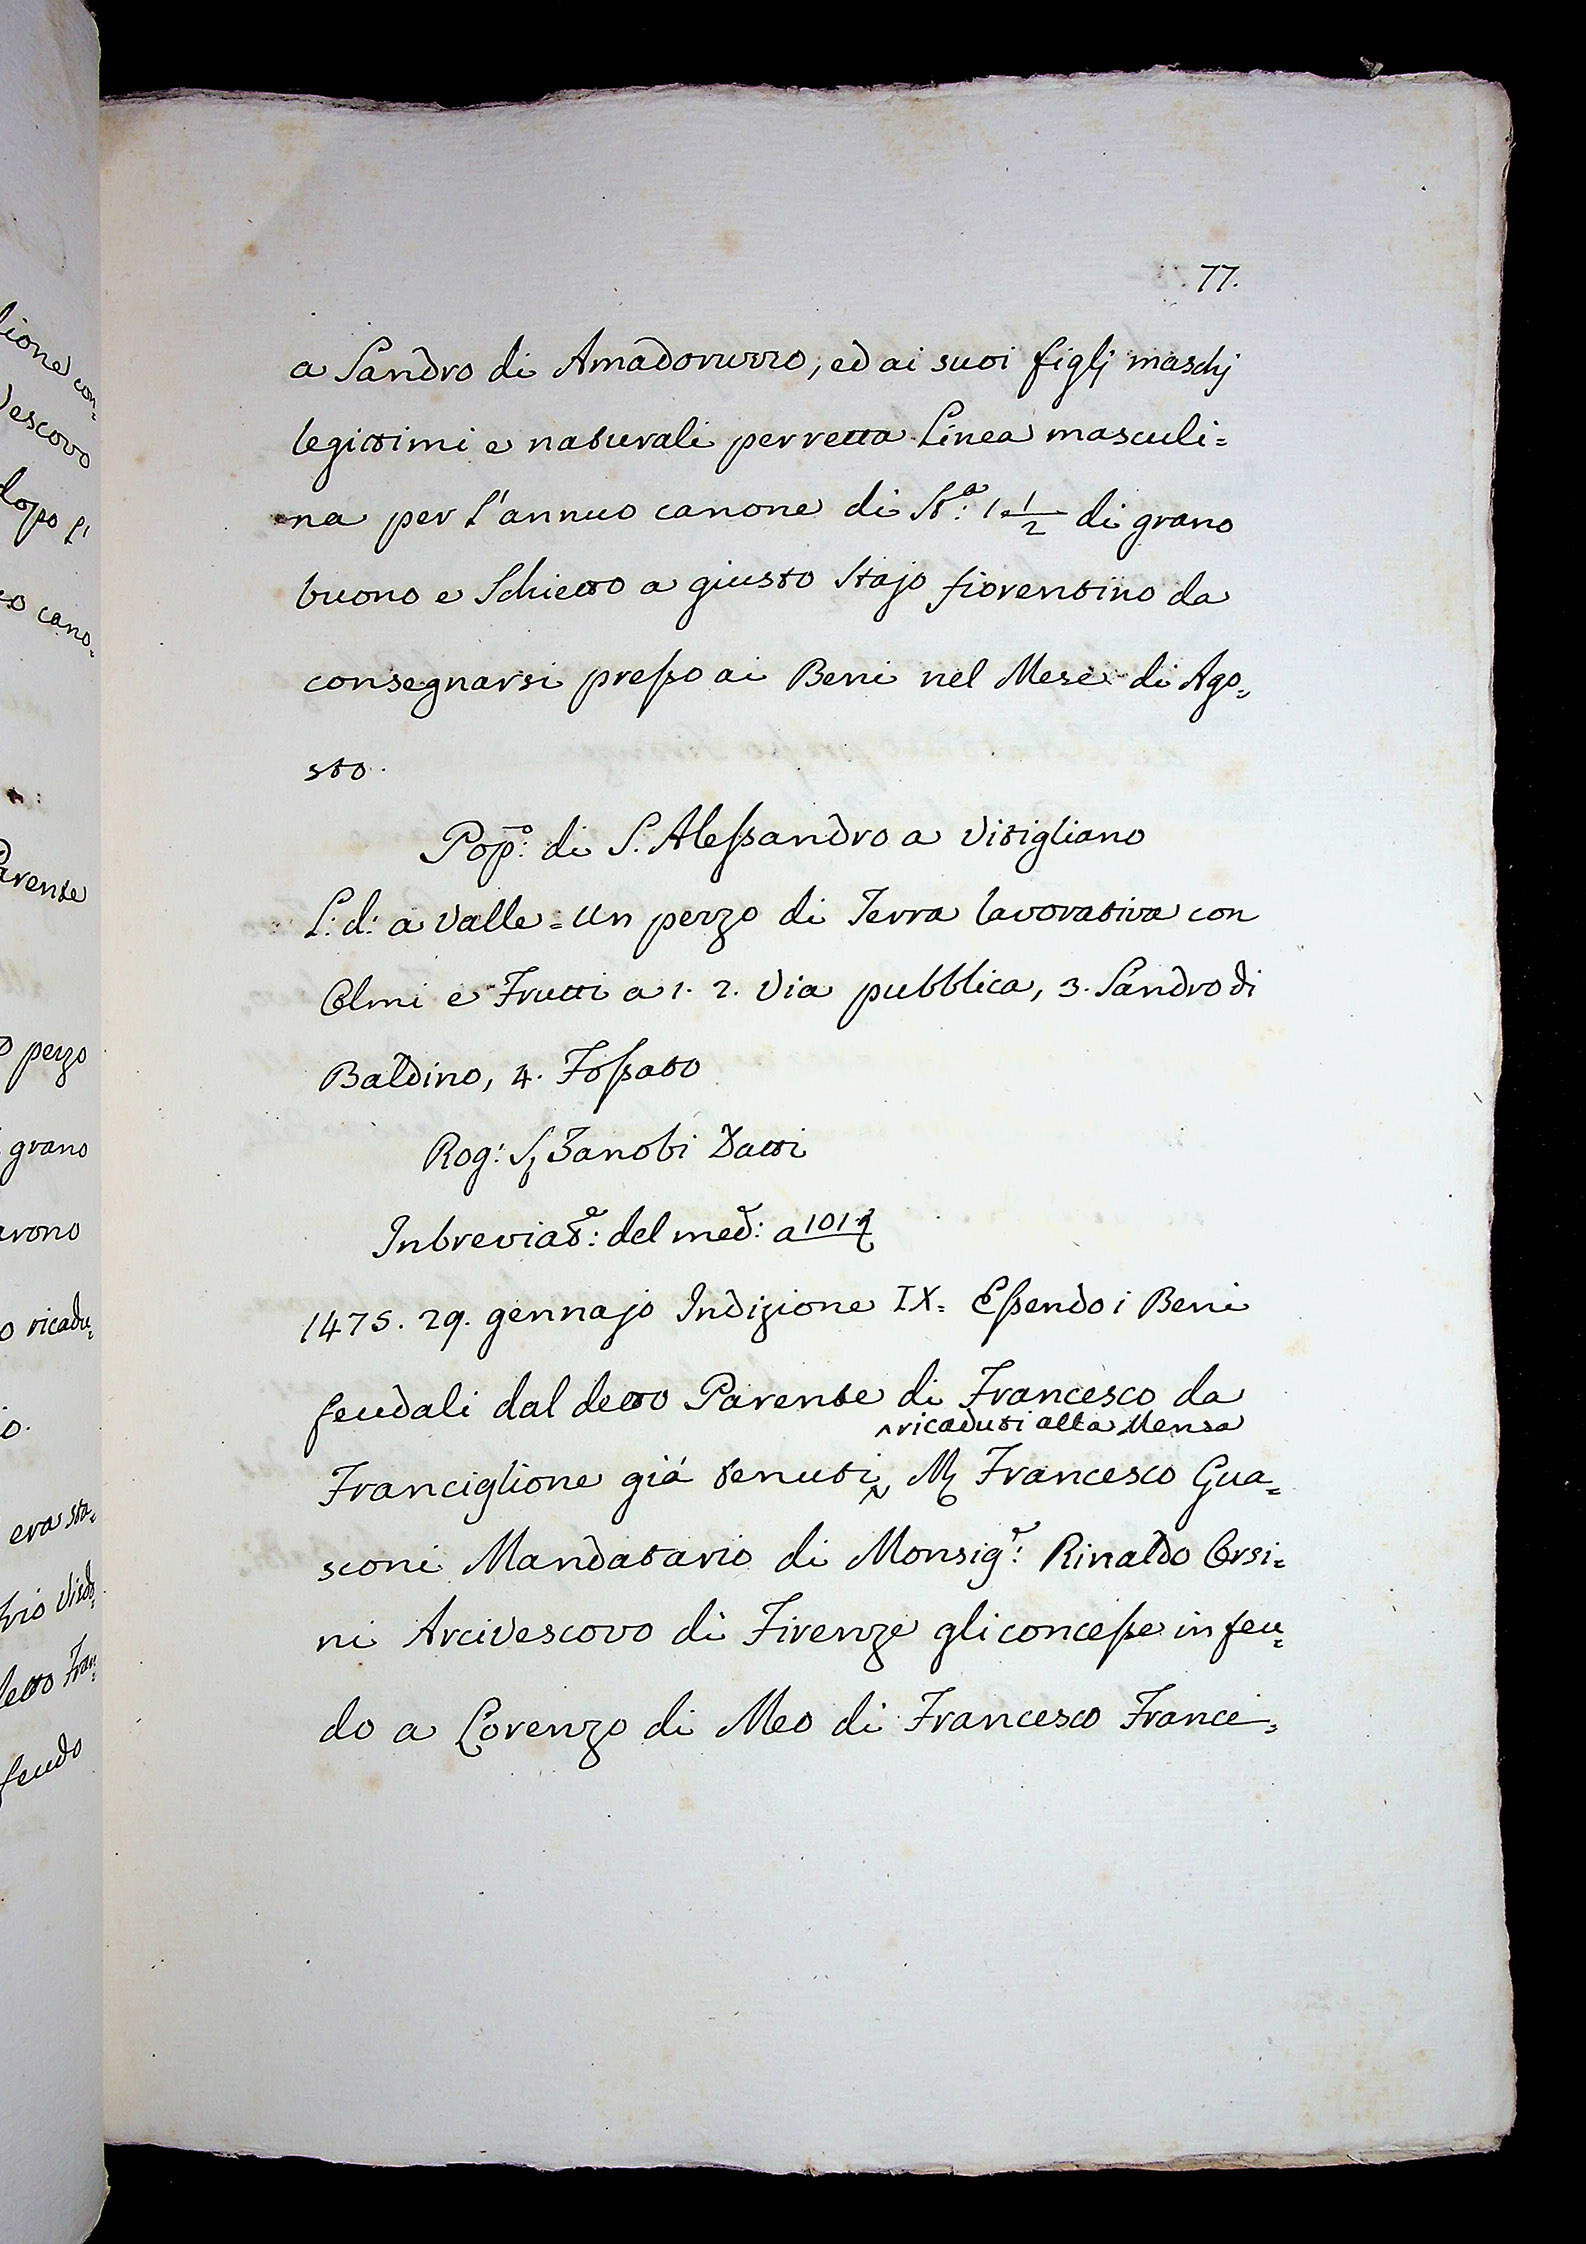 77.
a Sandro di Amadoruzzo, ed ai suoi figlj maschj
legittimi e naturali per retta Linea masculi=
na per l'annuo canone di St.ª: 1 1/2 di grano
buono e Schietto a giusto Stajo fiorentino da
consegnarsi presso ai Beni nel Mese di Ago=
sto.
Pop.º: di S. Alessandro a Vitigliano
L: d: a Valle = Un pezzo di Terra lavorativa con
Olmi e Frutti a 1. 2. Via pubblica, 3. Sandro di
Baldino, 4. Fossato
Rog: S. Zanobi Datti
Inbreviat.e: del med: a 101.
1475. 29. gennajo Indizione IX. Essendo i Beni
feudali dal detto Parente di Francesco da
^ricaduti alla Mensa
Franciglione giá tenuti^ M. Francesco Gua=
sconi Mandatario di Monsig.e: Rinaldo Orsi=
ni Arcivescovo di Firenze gli concesse in feu=
do a Lorenzo di Meo di Francesco Franci=
lione con=
vescovo
dopo l'
cano=
arente
pezzo
grano
o ricadu=
era sta=
letto Fran=
feudo